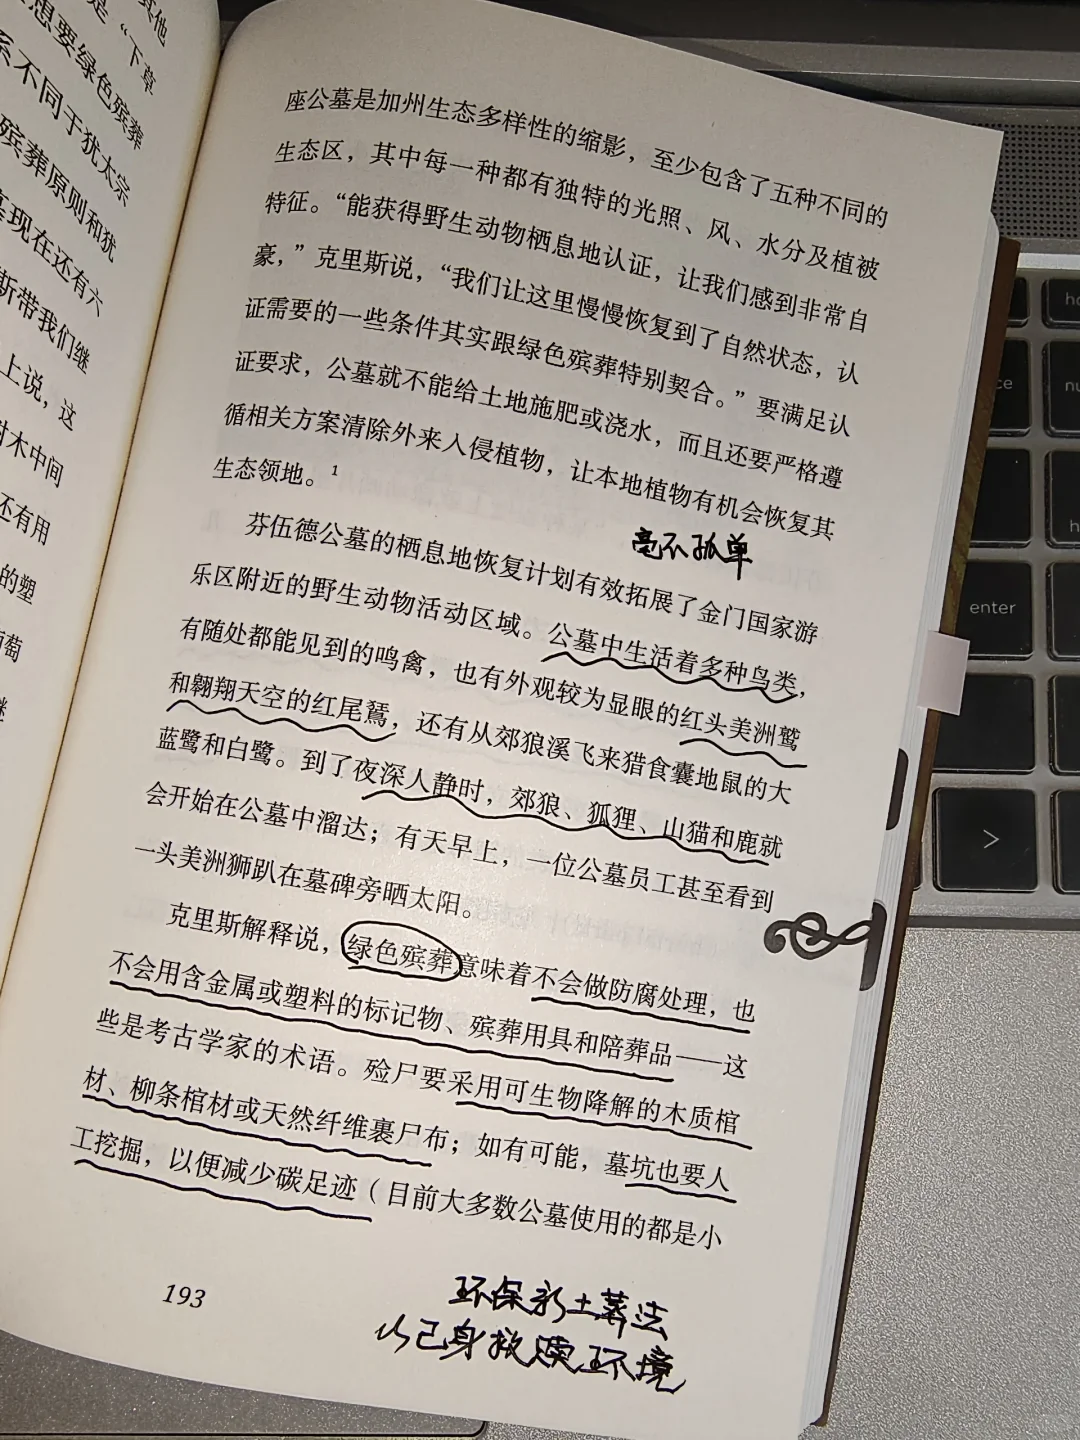 其他
是“下草
想要绿色殡葬
系不同于犹太宗
殡葬原则和犹
墓现在还有六
斯带我们继
上说，这
树木中间
还有用
的塑
葡萄
继
座公墓是加州生态多样性的缩影，至少包含了五种不同的
生态区，其中每一种都有独特的光照、风、水分及植被
特征。“能获得野生动物栖息地认证，让我们感到非常自
豪，”克里斯说，“我们让这里慢慢恢复到了自然状态，认
证需要的一些条件其实跟绿色殡葬特别契合。”要满足认
证要求，公墓就不能给土地施肥或浇水，而且还要严格遵
循相关方案清除外来入侵植物，让本地植物有机会恢复其
生态领地。¹
毫不孤单
芬伍德公墓的栖息地恢复计划有效拓展了金门国家游
乐区附近的野生动物活动区域。公墓中生活着多种鸟类，
有随处都能见到的鸣禽，也有外观较为显眼的红头美洲鹫
和翱翔天空的红尾鵟，还有从郊狼溪飞来猎食囊地鼠的大
蓝鹭和白鹭。到了夜深人静时，郊狼、狐狸、山猫和鹿就
会开始在公墓中溜达；有天早上，一位公墓员工甚至看到
一头美洲狮趴在墓碑旁晒太阳。
克里斯解释说，绿色殡葬意味着不会做防腐处理，也
不会用含金属或塑料的标记物、殡葬用具和陪葬品——这
些是考古学家的术语。殓尸要采用可生物降解的木质棺
材、柳条棺材或天然纤维裹尸布；如有可能，墓坑也要人
工挖掘，以便减少碳足迹（目前大多数公墓使用的都是小
193
环保新土葬法
以己身救赎环境
enter